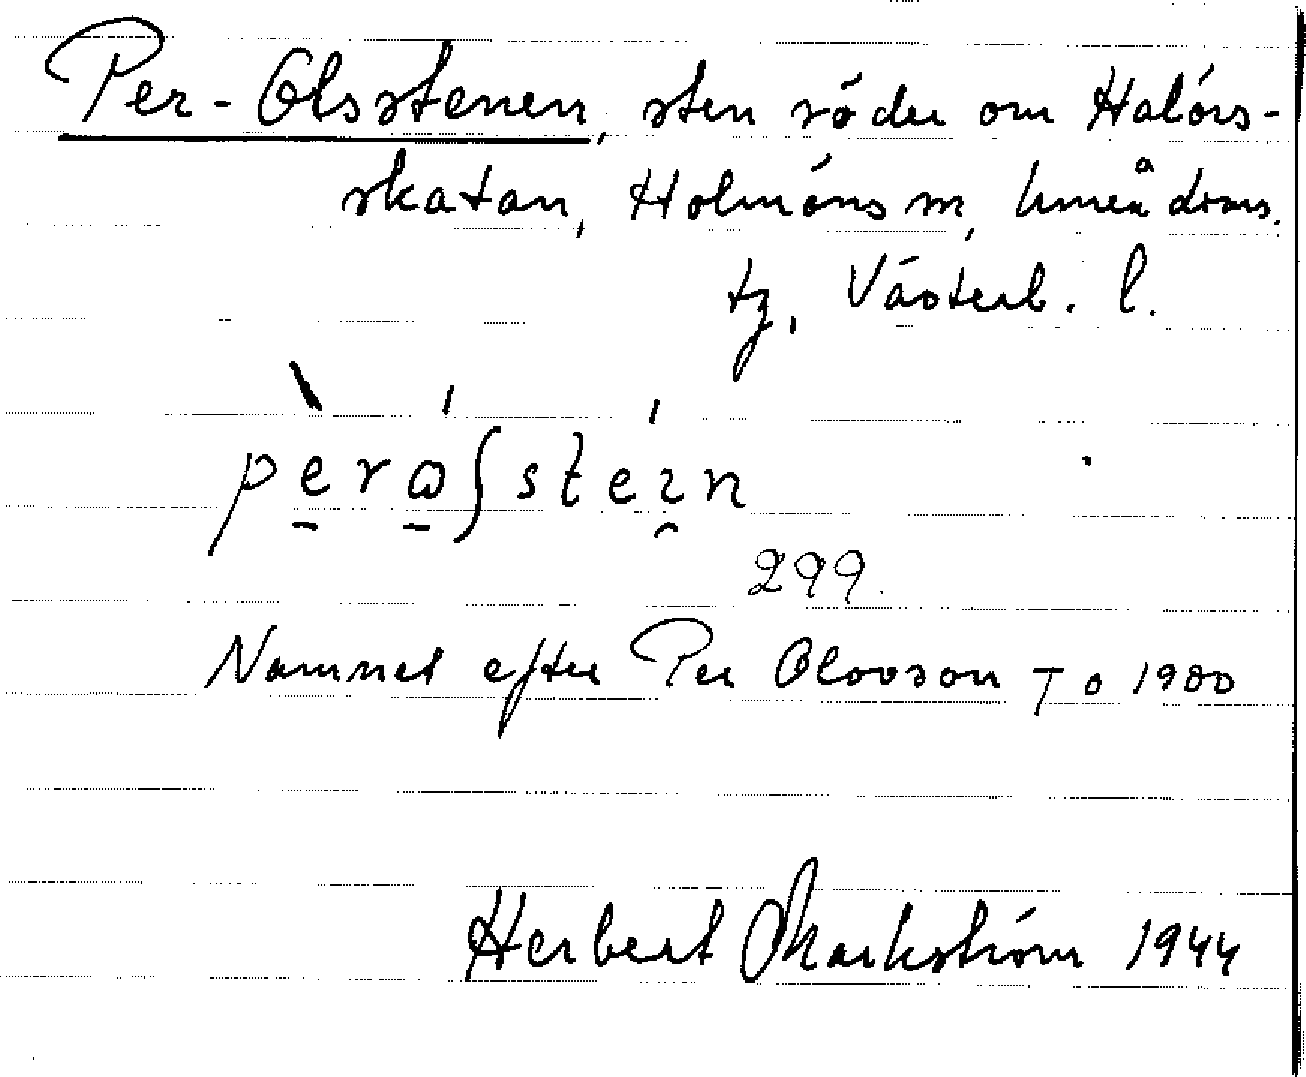 Per-Olsstenen, sten söder om Halörs-
skatan, Holmöns sn, Umeå doms.
tg, Västerb. l.
299.
Namnet efter Per Olovson
Herbert Markström 1944